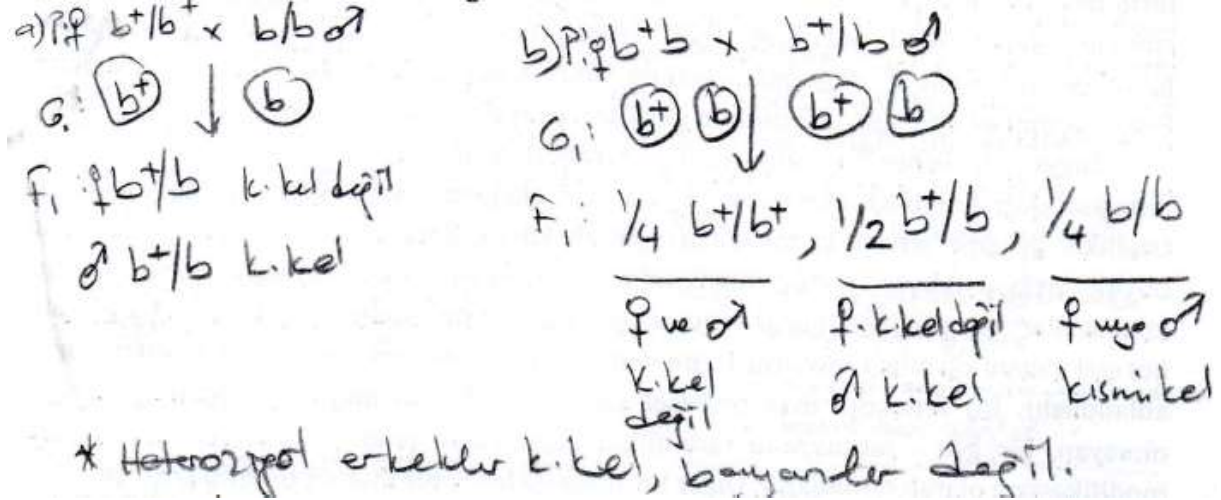 a) P: ♀ b⁺/b⁺ x b/b ♂
G: b⁺ ↓ b
F₁ : ♀ b⁺/b k. kel değil
♂ b⁺/b k.kel
b) P: ♀ b⁺b x b⁺/b ♂
G₁: b⁺ b ↓ b⁺ b
F₁: 1/4 b⁺/b⁺, 1/2 b⁺/b, 1/4 b/b
♀ ve ♂ ♀. k.kel değil ♀ veya ♂
k.kel ♂ k.kel kısmi kel
değil
* Heterozigot erkekler k.kel, bayanlar değil.